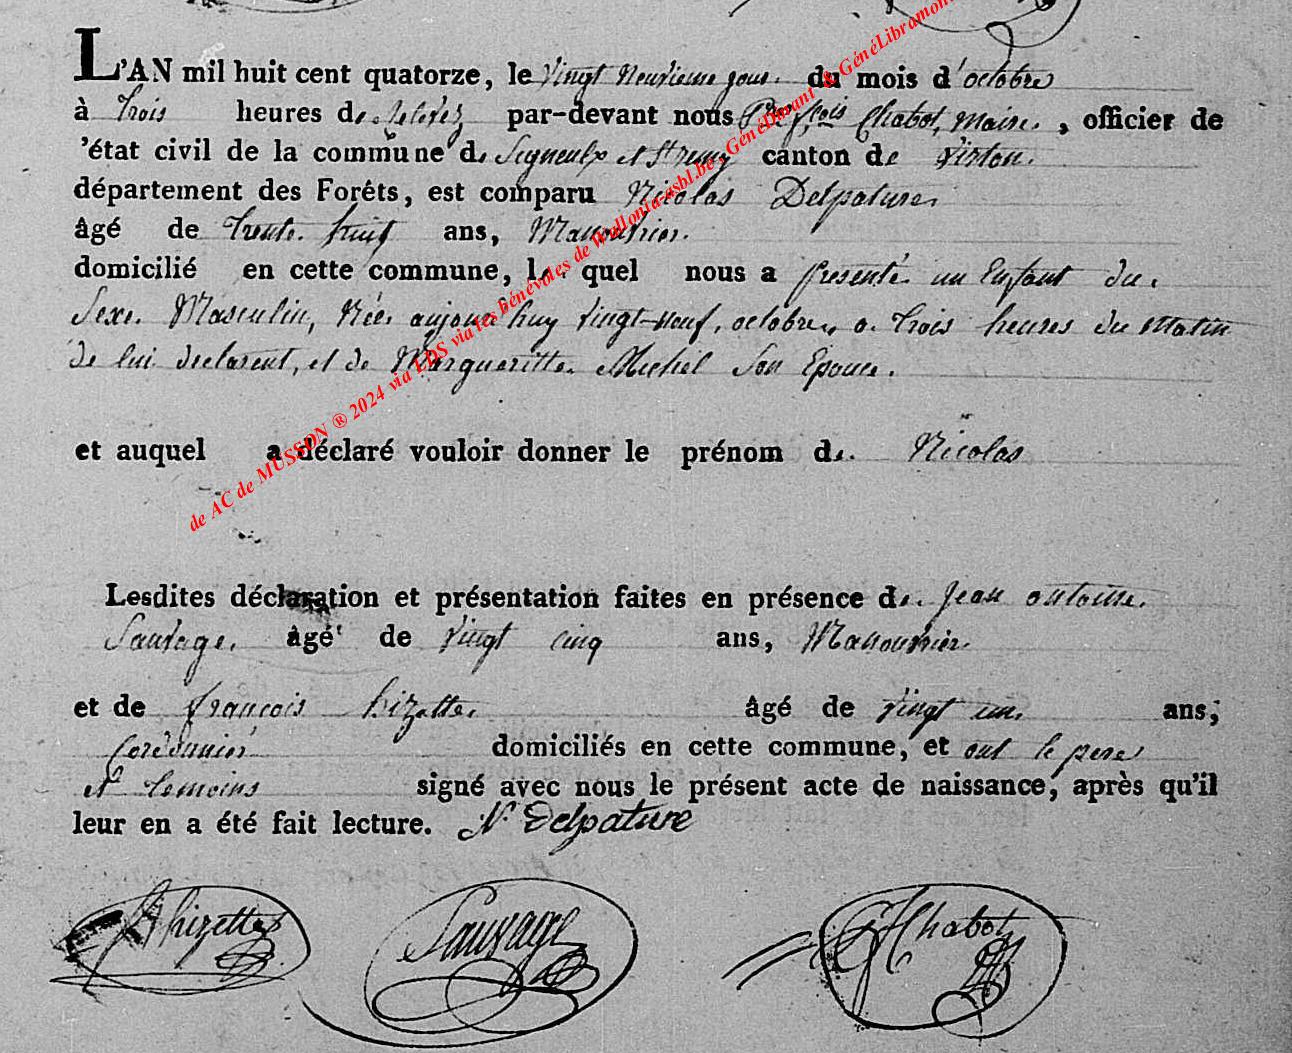 L'AN mil huit cent quatorze, le vingt neuvieme jour du mois d'octobre
à trois heures de relevéz par-devant nous çois Chabot, Maire, officier de
'état civil de la commune de Signeulx et St remy canton de Virton.
département des Forêts, est comparu Nicolas Delpature
âgé de trente huit ans, Manouvrier.
domicilié en cette commune, le quel nous a presenté un Enfant du
Sexe Masculin, Née aujourd'huy vingt-neuf octobre a trois heures du Matin
de lui declarent, et de Margueritte Michel Son Epouce.
et auquel a déclaré vouloir donner le prénom de Nicolas
Lesdites déclaration et présentation faites en présence de Jean antoine
Sauvage âgé de vingt cinq ans, Manouvrier
et de françois hizette âgé de vingt un ans,
Cordonnier domiciliés en cette commune, et ont le pere
et temoins signé avec nous le présent acte de naissance, après qu'il
leur en a été fait lecture. N. Delpature
hizette Sauvage Chabot
de AC de MUSSON ® 2024 via LDS via les bénévoles de Wallonia-asbl.be, GénéDinant & GénéLibramont